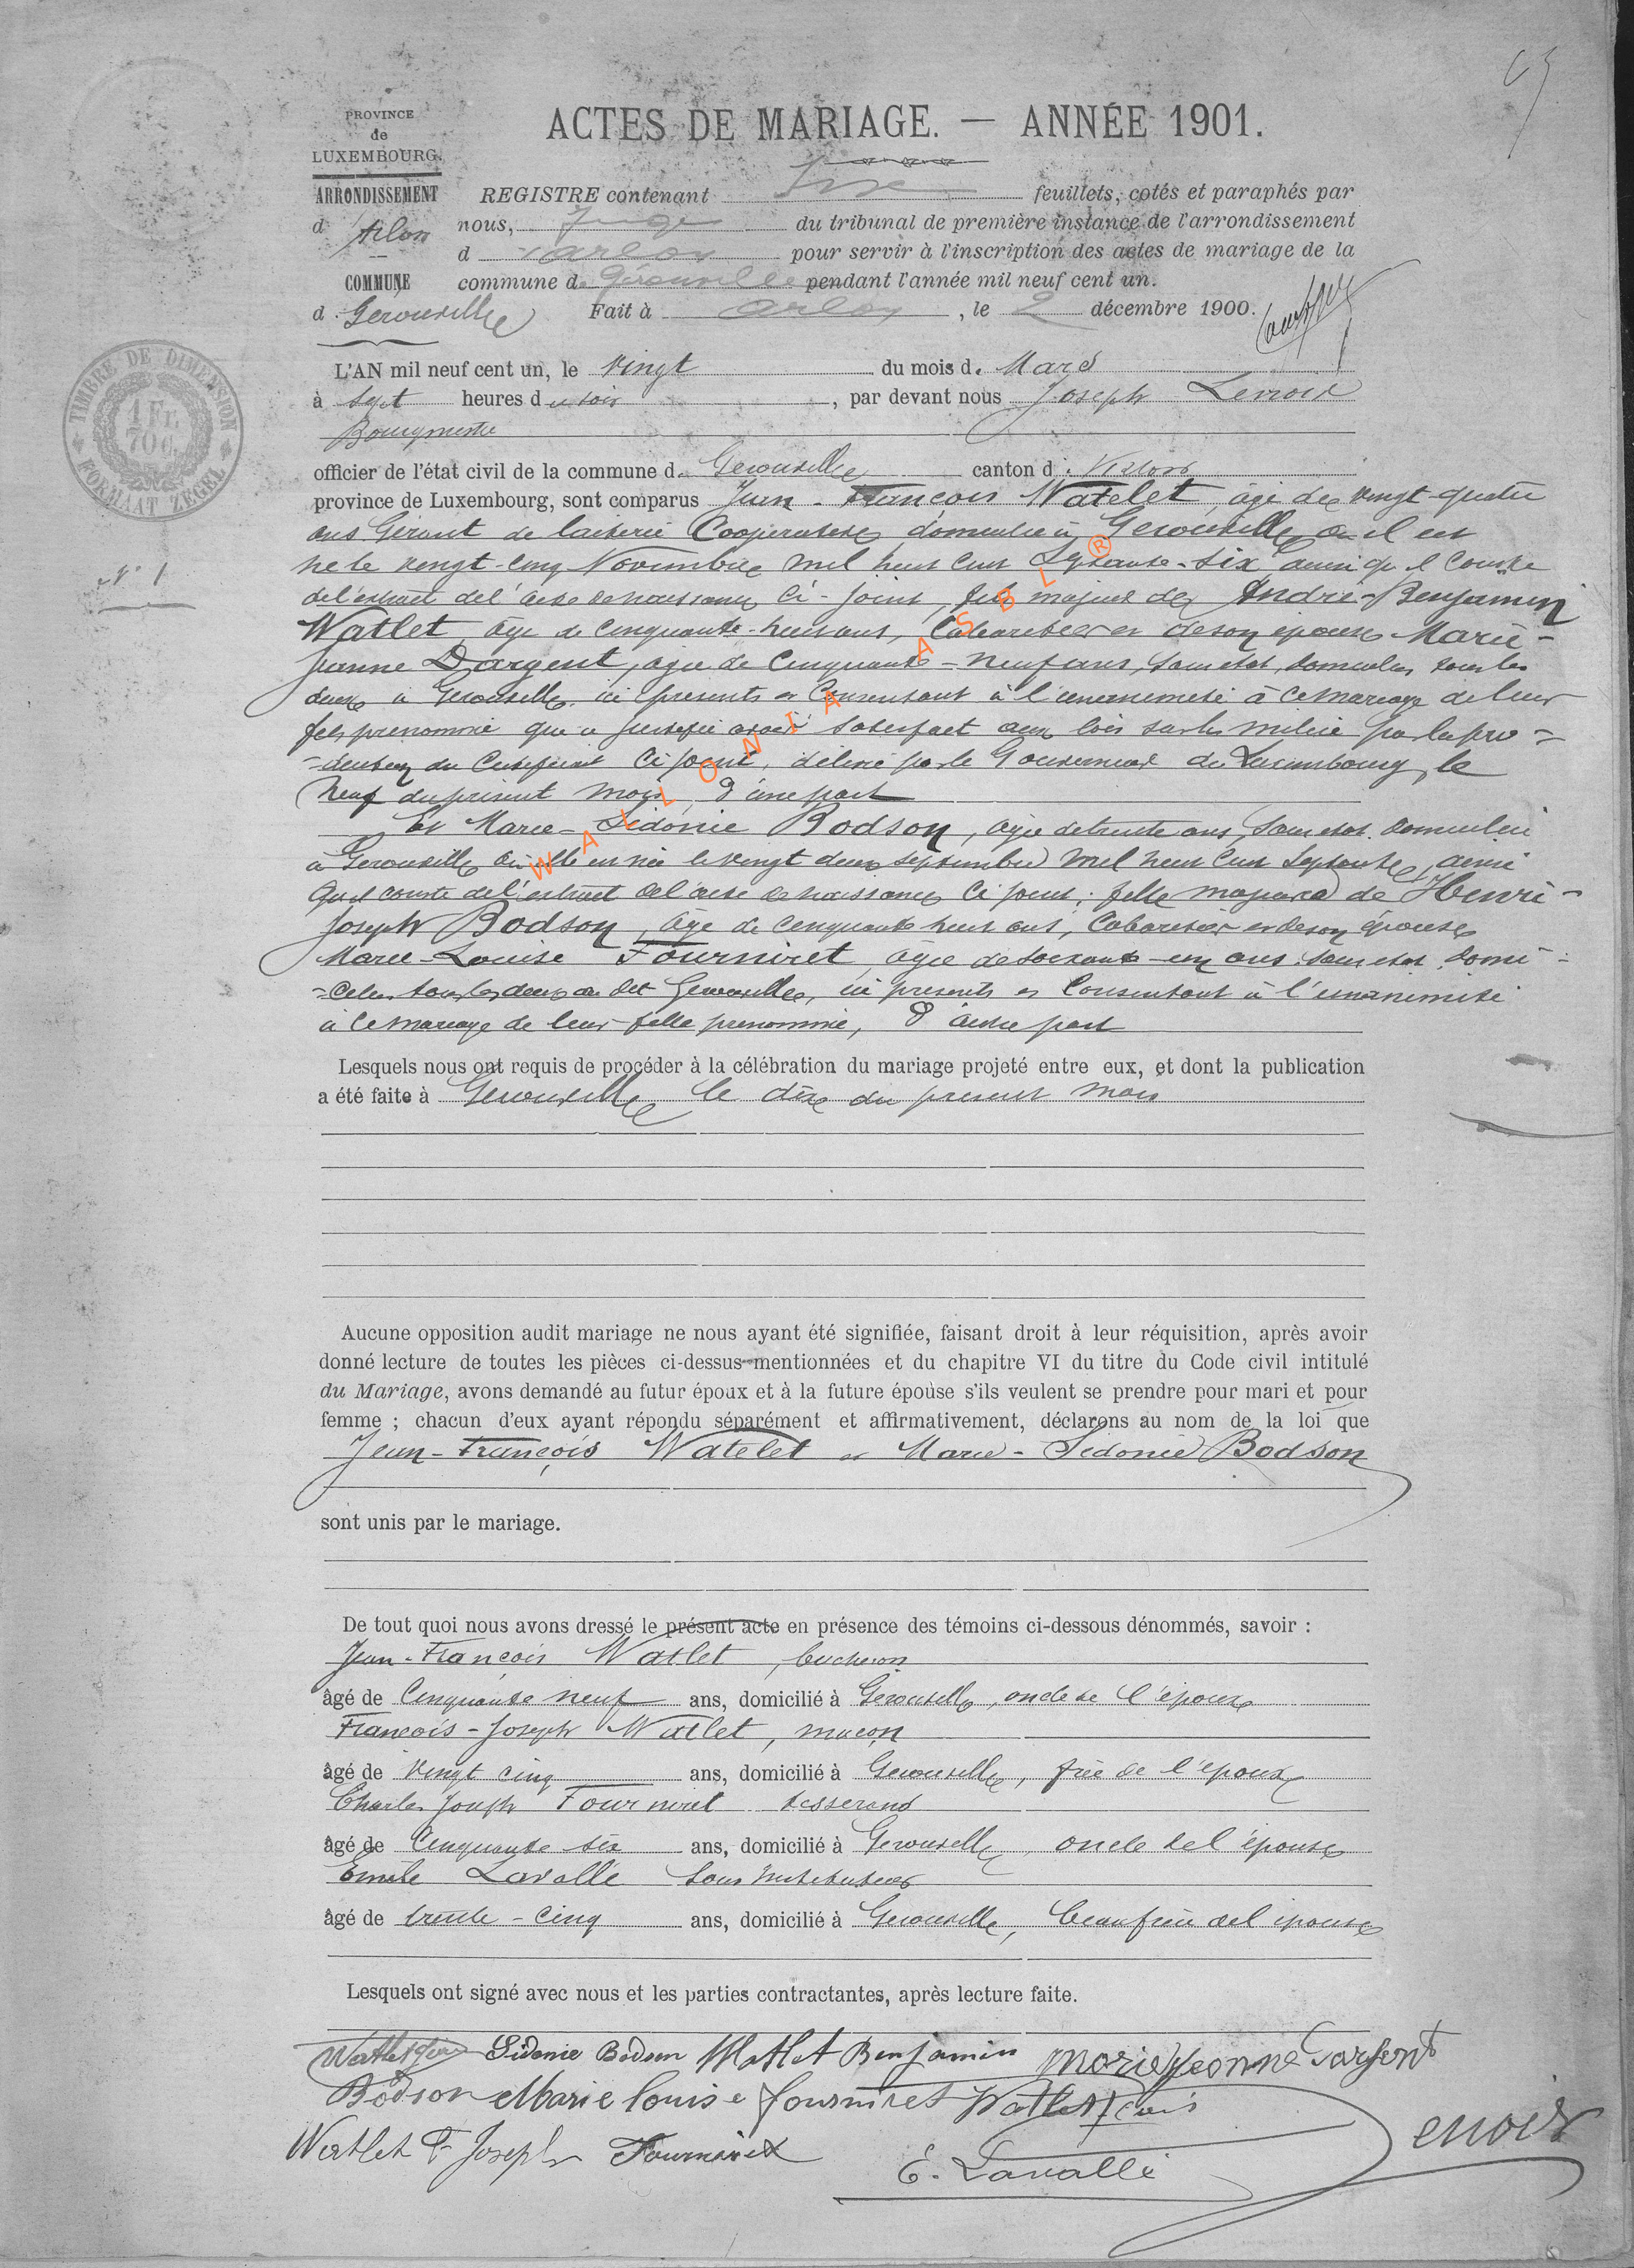 ACTES DE MARIAGE. — ANNÉE 1901.
PROVINCE
de
LUXEMBOURG.
ARRONDISSEMENT
d'Arlon
COMMUNE
d. Gerouville
REGISTRE contenant six feuillets, cotés et paraphés par
nous, Juge du tribunal de première instance de l'arrondissement
d'arlon pour servir à l'inscription des actes de mariage de la
commune de Gérouville pendant l'année mil neuf cent un.
Fait à Arlon, le 2 décembre 1900.
TIMBRE DE DIMENSION
1 Fr.
70 c.
FORMAAT ZEGEL
N° 1
L'AN mil neuf cent un, le vingt du mois de Mars
à sept heures du soir, par devant nous Joseph Lenoir
Bourgmestre
officier de l'état civil de la commune de Gerouville canton d. Virton
province de Luxembourg, sont comparus Jean-François Watelet, âgé de vingt-quatre
ans Gérant de laiterie Cooperative, domicilié à Gerouville où il est
né le vingt-cinq Novembre mil huit cent Septante-six ainsi qu'il conste
de l'extrait de l'acte de naissance ci-joint, fils majeur de André-Benjamin
Watlet, âgé de cinquante-huit ans, Cabaretier et de son épouse Marie-
Jeanne Dargent, âgée de cinquante-neuf ans, sans etat, domiciliés tous les
deux à Gerouville, ici présents et consentant à l'unanimité à ce mariage de leur
fils prenommé qui a justifié avoir satisfait aux lois sur la milice par la pro=
=duction du certificat ci joint, délivré par le Gouverneur du Luxembourg, le
neuf du présent mois, d'une part
Et Marie-Sidonie Bodson, âgée de trente ans, sans etat, domiciliée
à Gerouville où elle est née le vingt deux septembre mil huit cent septante, ainsi
qu'il conste de l'extrait de l'acte de naissance ci joint; fille majeure de Henri-
Joseph Bodson, âgé de cinquante huit ans, Cabaretier et de son épouse
Marie-Louise Fourniret, âgée de soixante-un ans, sans etat, domi=
=ciliés tous les deux au dit Gerouville, ici présents et consentant à l'unanimité
à ce mariage de leur fille prenommée, d'autre part
Lesquels nous ont requis de procéder à la célébration du mariage projeté entre eux, et dont la publication
a été faite à Gerouville le dix du présent mois
Aucune opposition audit mariage ne nous ayant été signifiée, faisant droit à leur réquisition, après avoir
donné lecture de toutes les pièces ci-dessus mentionnées et du chapitre VI du titre du Code civil intitulé
du Mariage, avons demandé au futur époux et à la future épouse s'ils veulent se prendre pour mari et pour
femme ; chacun d'eux ayant répondu séparément et affirmativement, déclarons au nom de la loi que
Jean-François Watelet et Marie-Sidonie Bodson
sont unis par le mariage.
De tout quoi nous avons dressé le présent acte en présence des témoins ci-dessous dénommés, savoir :
Jean-François Watlet, bucheron
âgé de Cinquante neuf ans, domicilié à Gerouville, oncle de l'époux
François-Joseph Watlet, maçon
âgé de vingt cinq ans, domicilié à Gerouville, frère de l'époux
Charles Joseph Fourniret tisserand
âgé de Cinquante six ans, domicilié à Gerouville, oncle de l'épouse
Emile Lavalle sous instituteur
âgé de trente-cinq ans, domicilié à Gerouville, beau frère de l'épouse
Lesquels ont signé avec nous et les parties contractantes, après lecture faite.
Sidonie Bodson Watlet Benjamin Marie Jeanne Dargent
Bodson Marie louise fourniret Watlet
Watlet F Joseph Fourniret E. Lavallé Lenoir
WALLONIA ASBL ®